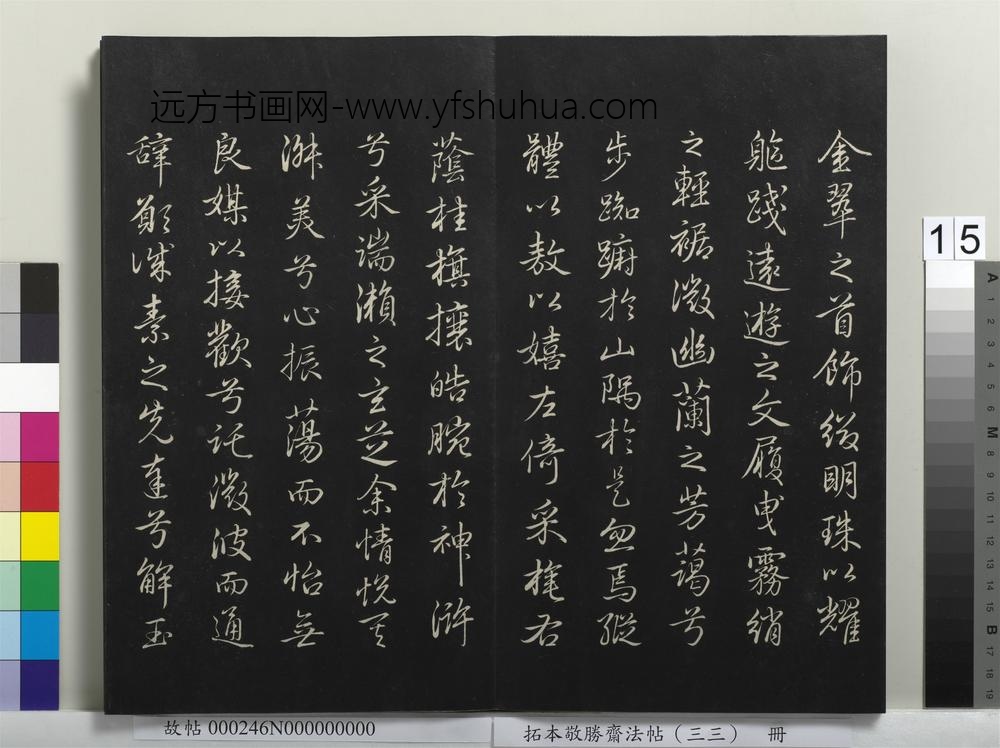 远方书画网-www.yfshuhua.com
金翠之首飾綴明珠以耀
軀踐遠遊之文履曳霧綃
之輕裾微幽蘭之芳藹兮
步踟躕於山隅於是忽焉縱
體以敖以嬉左倚采旄右
蔭桂旗攘皓腕於神滸
兮采湍瀨之玄芝余情悅其
淋美兮心振蕩而不怡無
良媒以接歡兮託微波而通
辭願誠素之先達兮解玉
15
A 1 2 3 4 5 6 M 8 9 10 11 12 13 14 15 B 17 18 19
故帖 000246N000000000
拓本敬勝齋法帖（三三） 冊